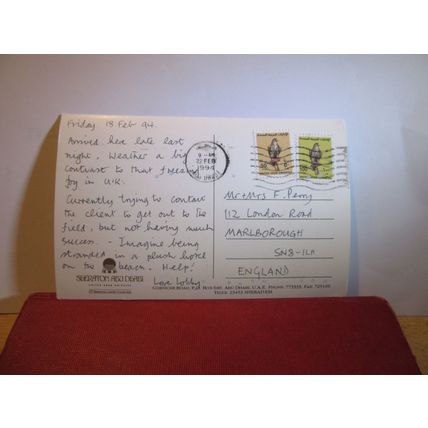 Friday 18 Feb 94.
Arrived here late last
night. Weather a big
contrast to that freeze
joy in U.K.
Currently trying to contact
the client to get out to the
field, but not having much
success. - Imagine being
stranded in a plush hotel
on the beach. Help!
Love
SHERATON ABU DHABI
9 - AM
22 FEB
1994
Mr + Mrs F. Perry
112 London Road
MARLBOROUGH
SN8-1LH
ENGLAND
CORNICHE ROAD, P.O. BOX 640, ABU DHABI, U.A.E. PHONE: 773333, FAX: 725149
TELEX: 23453 SHERAD EM